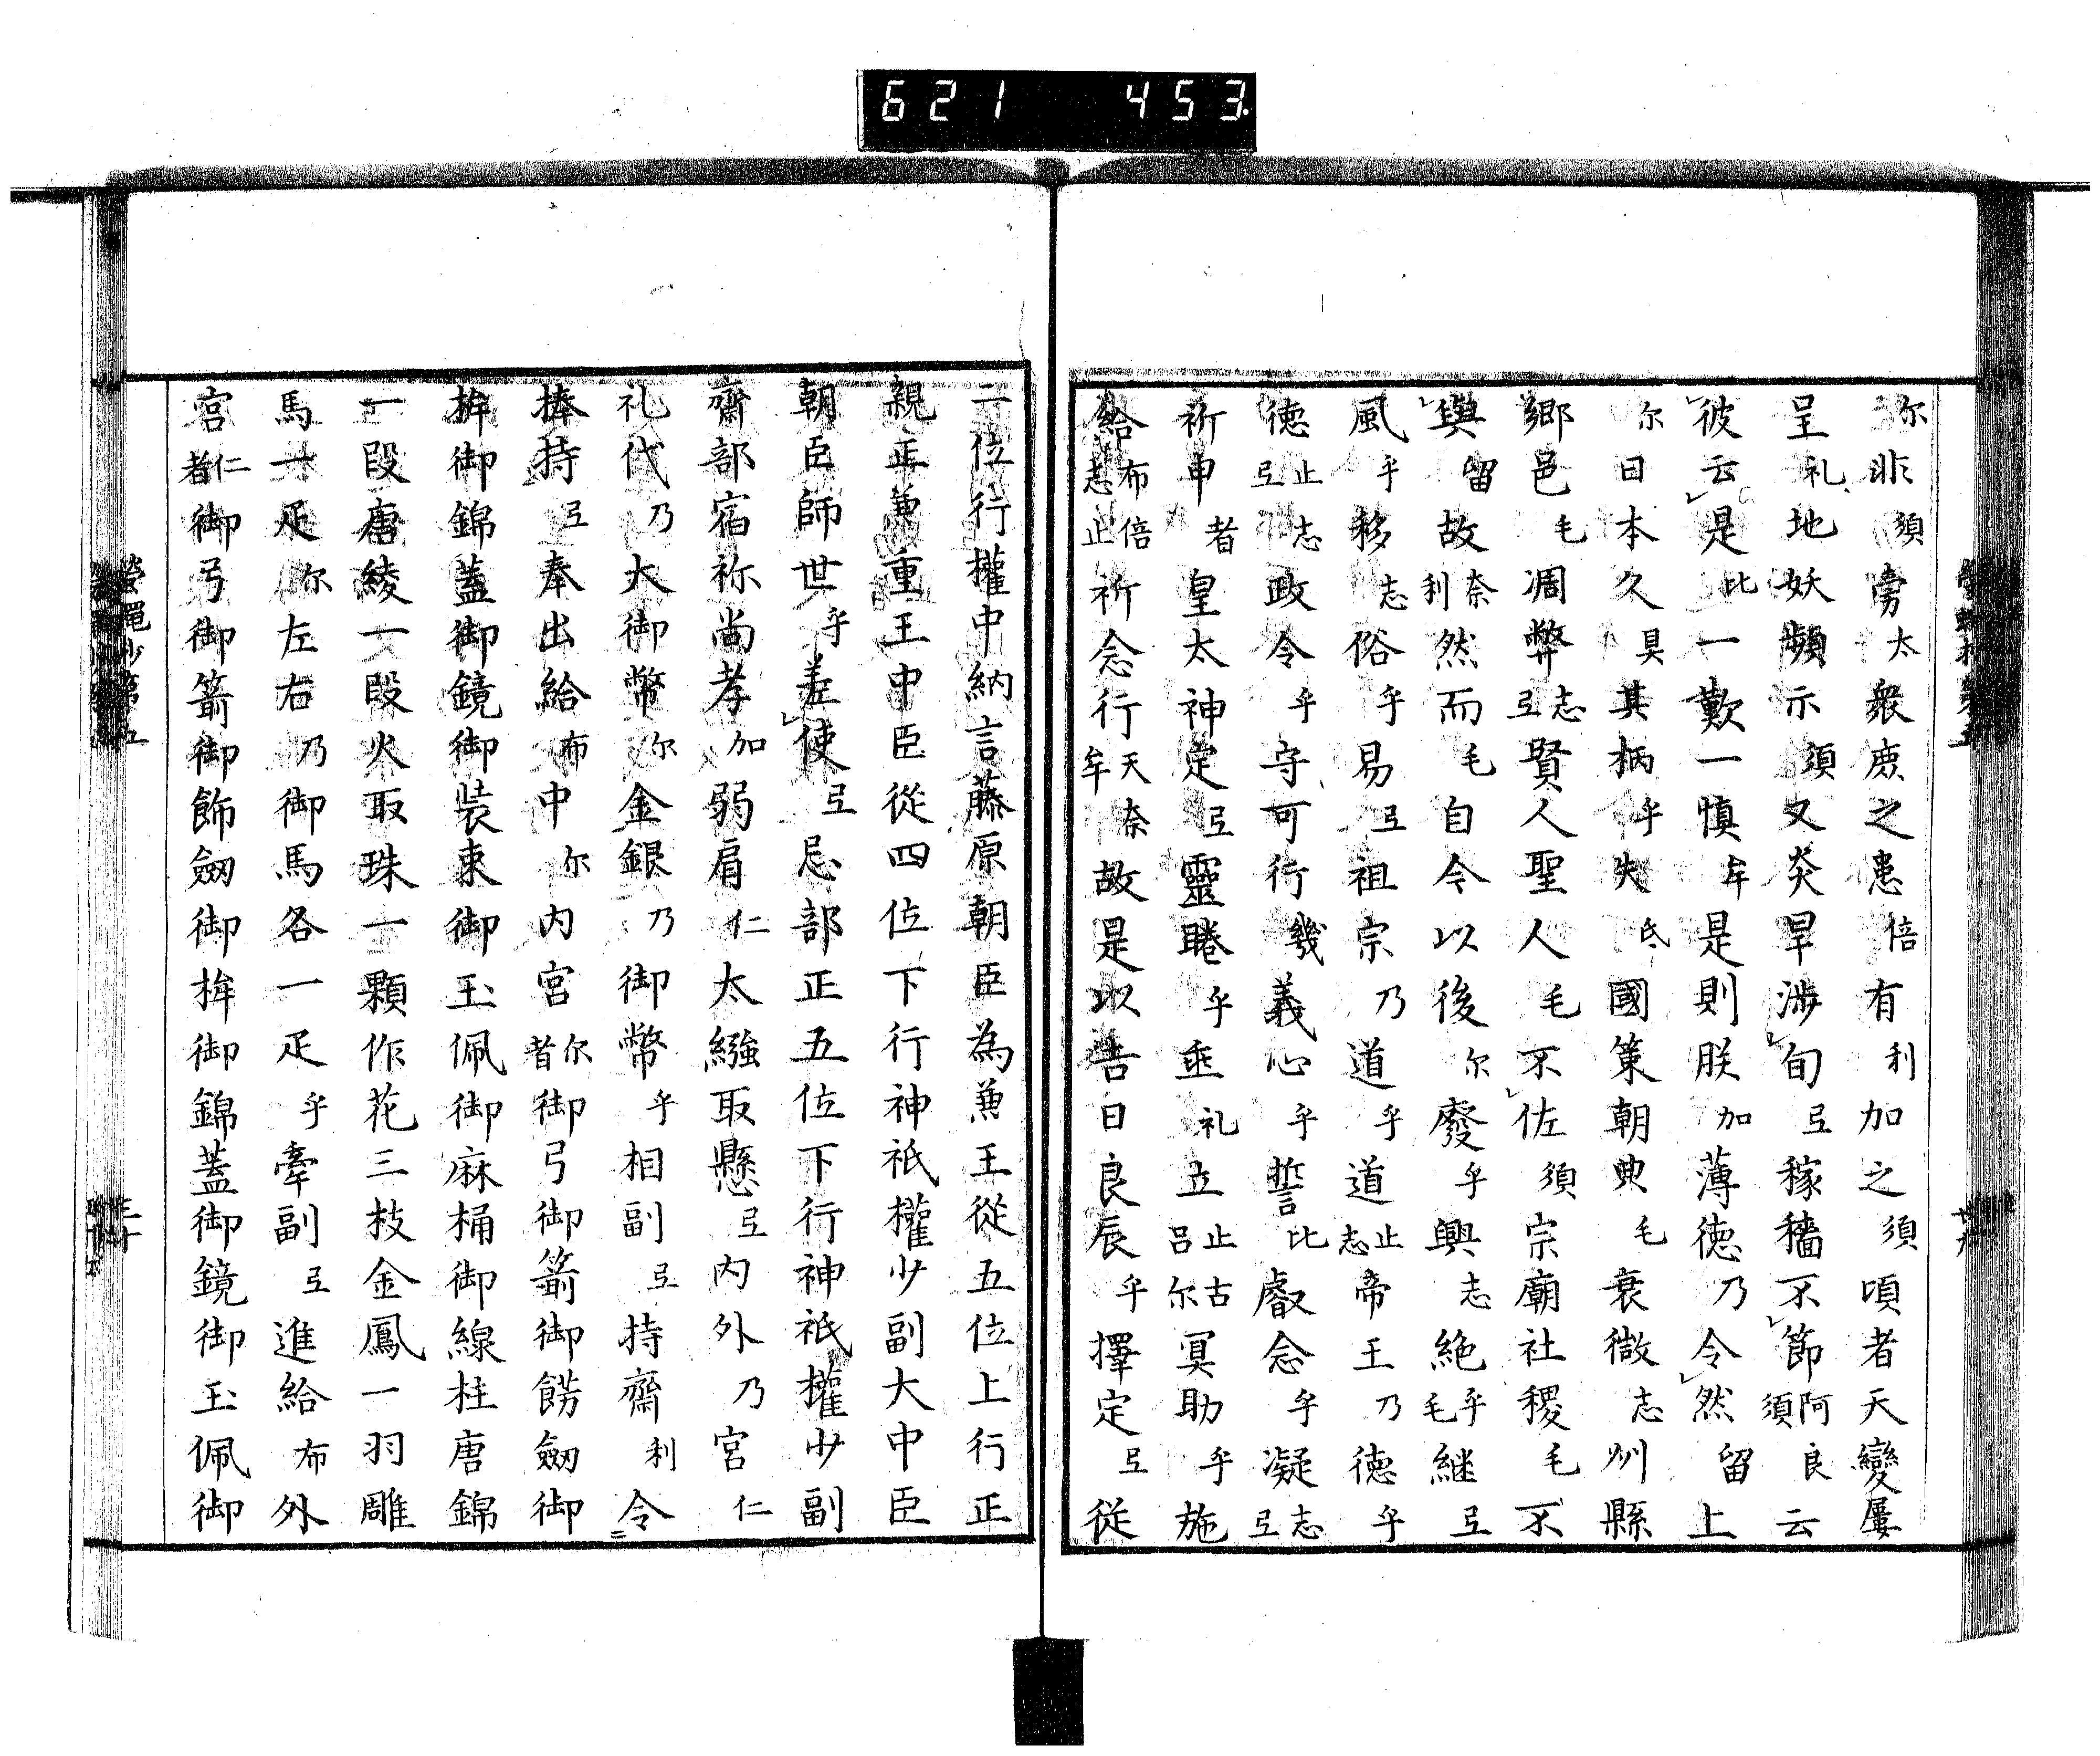 621 453
尔非須旁太衆庶之患倍有利加之須頃者天變屢
呈礼地妖頻示須又炎旱渉旬弖稼穡不節阿良須云
彼云是比一歎一慎牟是則朕加薄徳乃令然留上
尔日本久具其柄乎失氐國策朝典毛衰微志州縣
郷邑毛凋弊志弖賢人聖人毛不佐須宗廟社稷毛不
與留故奈利然而毛自今以後尔廢乎興志絶乎毛継弖
風乎移志俗乎易弖祖宗乃道乎道止志帝王乃徳乎
徳止弖志政令乎守可行幾義心乎誓比叡念乎凝志弖
祈申者皇太神定弖靈睠乎垂礼立止吕古尔冥助乎施
給布志倍止祈念行天牟奈故是以吉日良辰乎擇定弖従
二位行權中納言藤原朝臣為兼王從五位上行正
親正兼重王中臣從四位下行神祇權少副大中臣
朝臣師世乎差使弖忌部正五位下行神祇權少副
齋部宿祢尚孝加弱肩仁太繦取懸弖内外乃宮仁
礼代乃大御幣尔金銀乃御幣乎相副弖持齋利令
捧持弖奉出給布中尔内宮尔者御弓御箭御餝劔御
桙御錦蓋御鏡御裝束御玉佩御麻桶御線柱唐錦
一段唐綾一段火取珠一顆作花三枝金鳳一羽雕
馬一疋尔左右乃御馬各一疋乎牽副弖進給布外
宮仁者御弓御箭御飾劔御桙御錦蓋御鏡御玉佩御